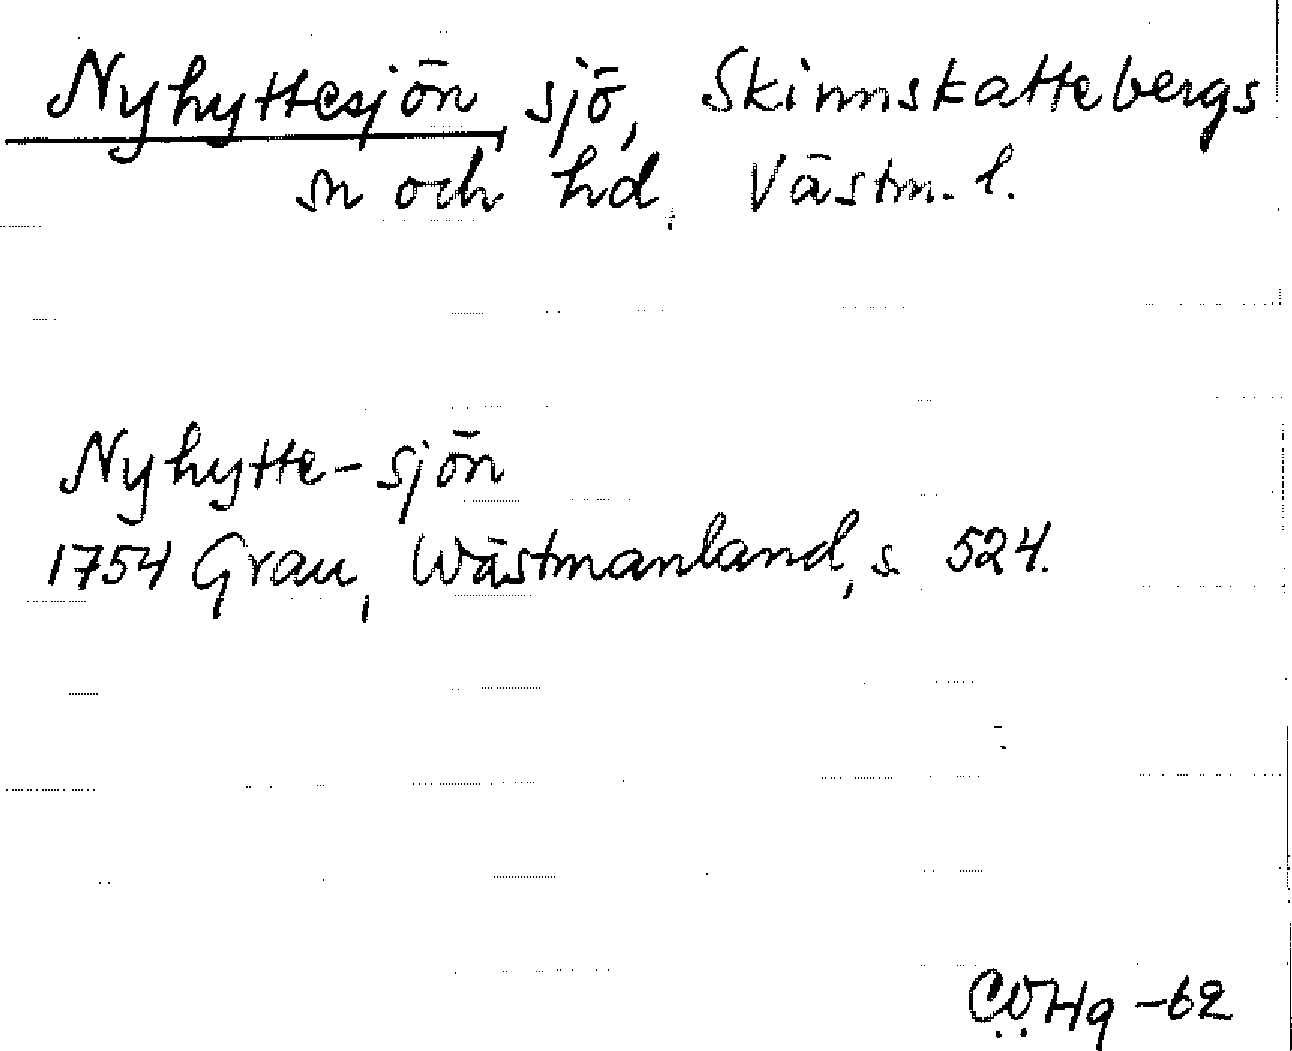 Nyhyttesjön sjö, Skinnskattebergs
sn och hd, Västm. l.
Nyhytte-sjön
1754 Grau, Wästmanland, s 524.
-62